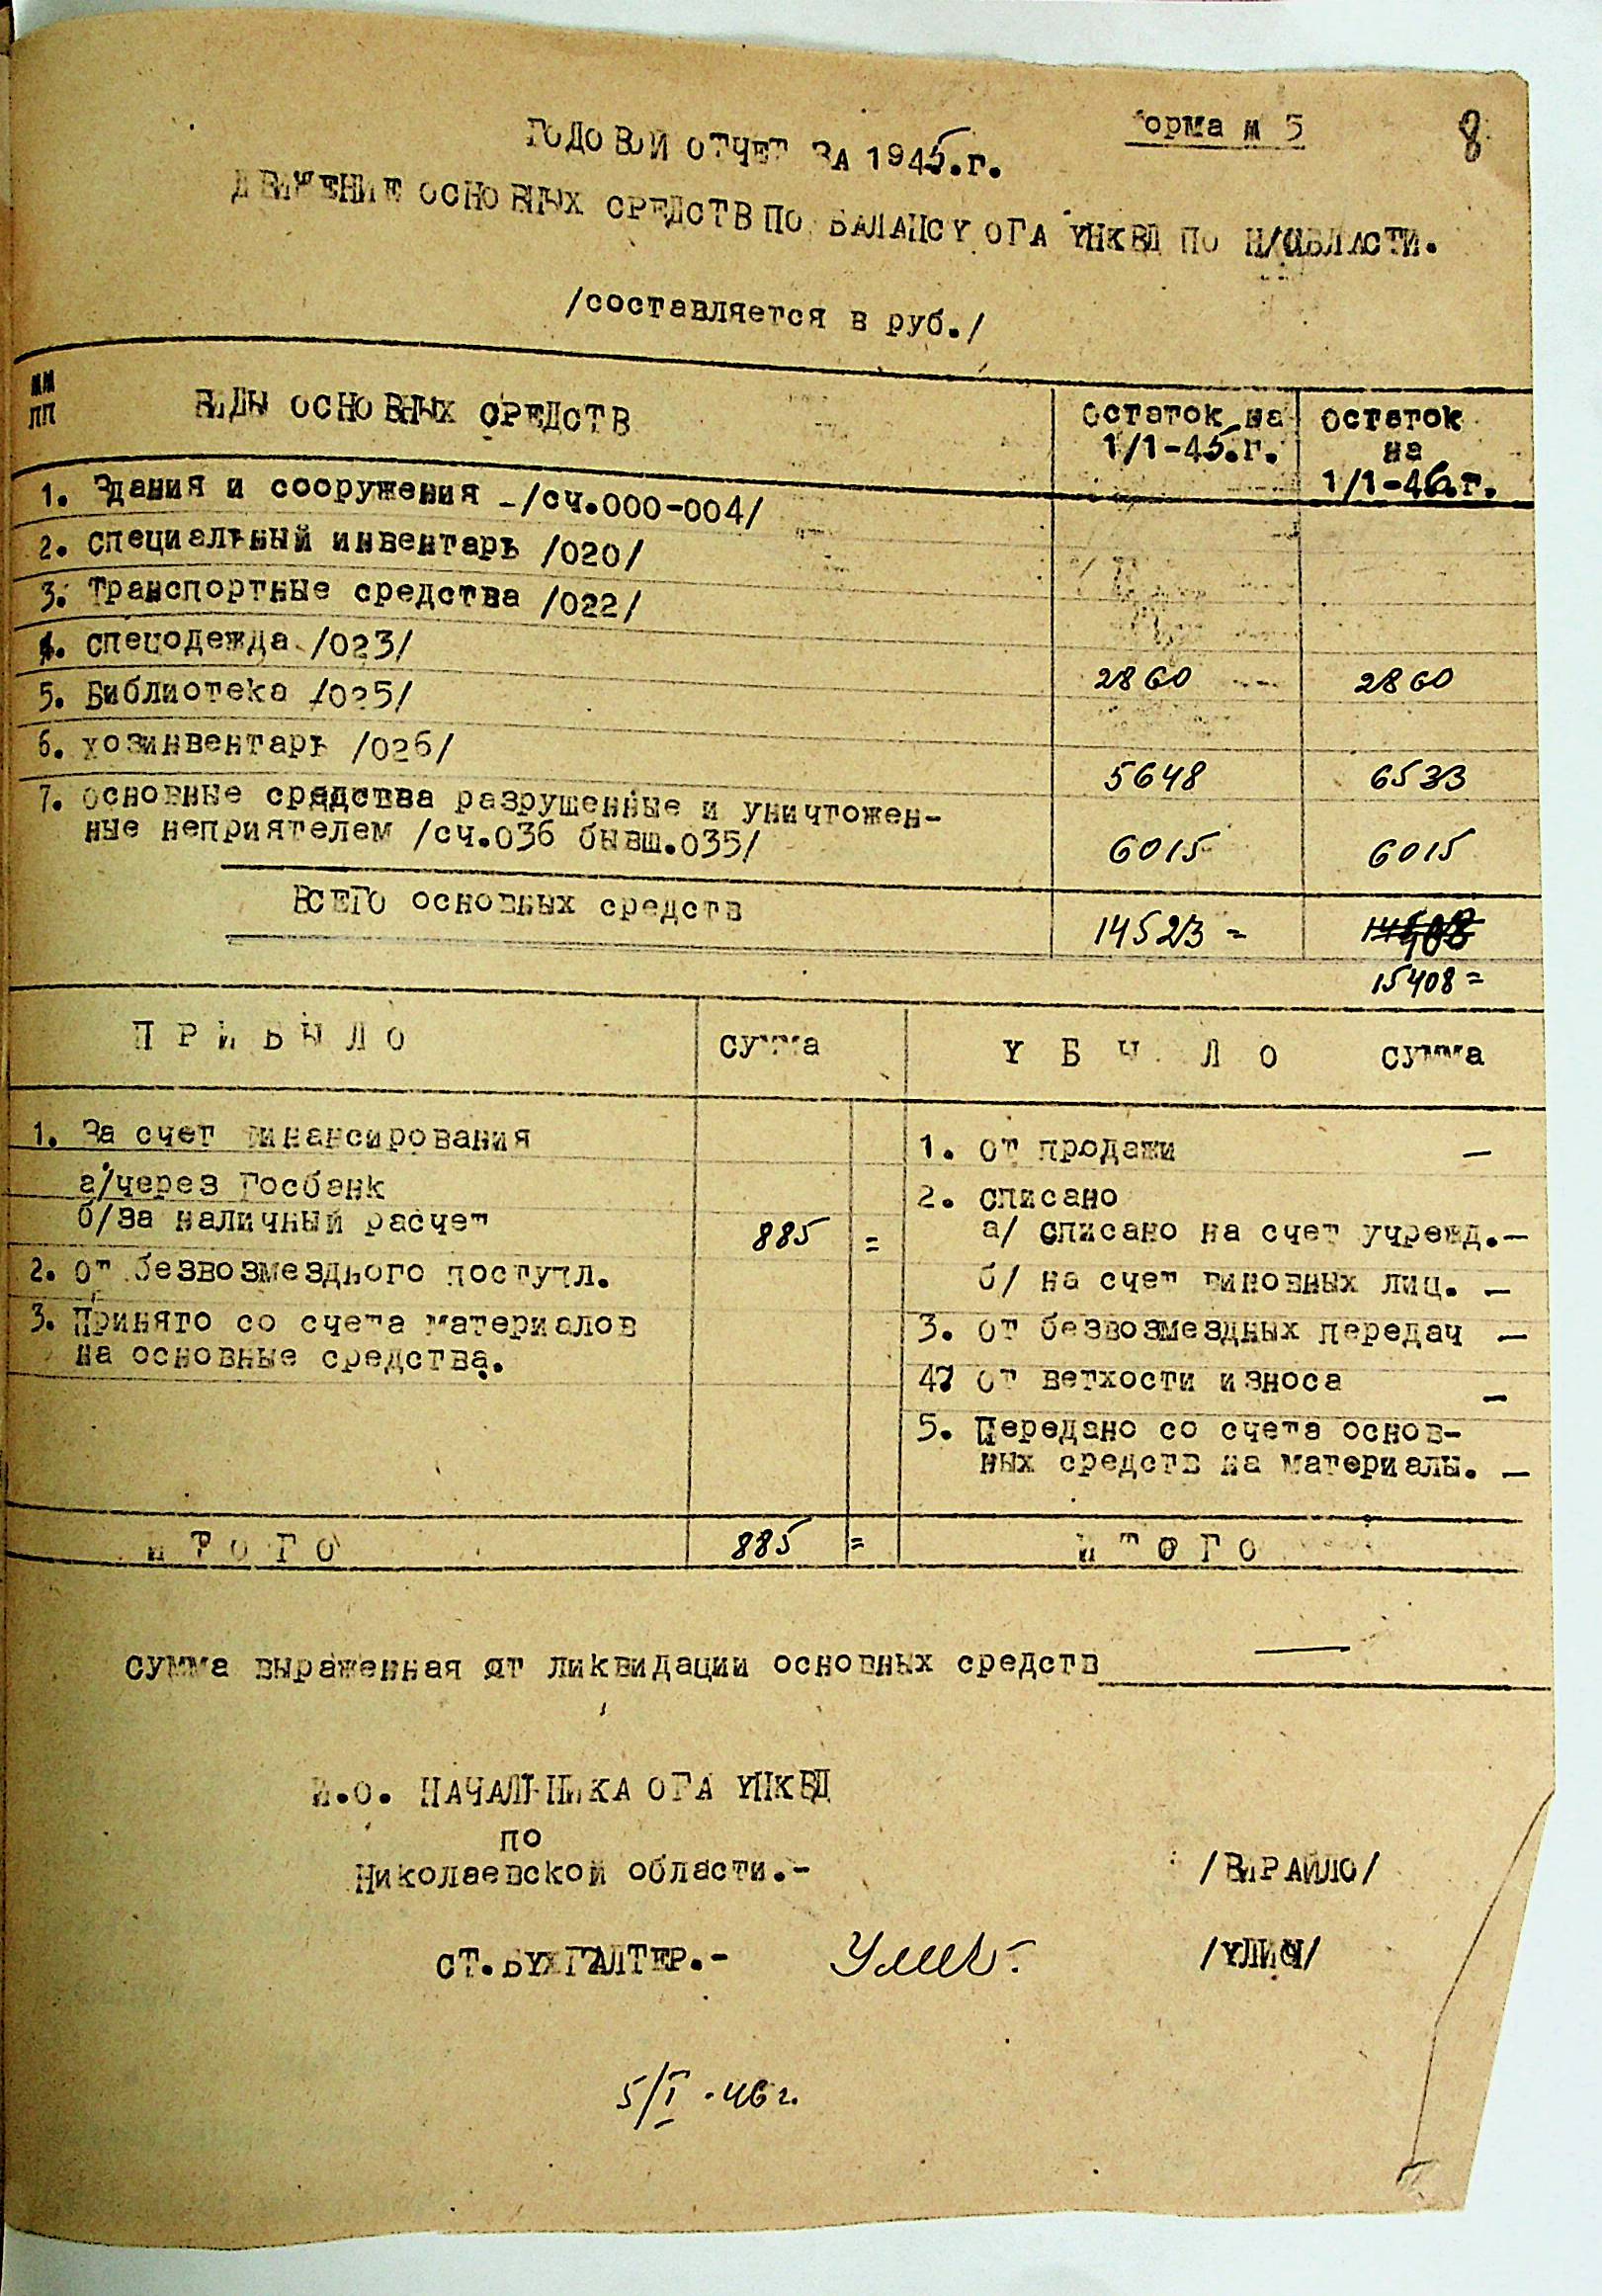 орма № 5
8
ГОДОВОЙ ОТЧЕТ ЗА 1945.г.
ДВИЖЕНИЕ ОСНОВНЫХ СРЕДСТВ ПО БАЛАНСУ ОГА УНКВД ПО Н/ОБЛАСТИ.
/составляется в руб./
№№ ПП ВИДЫ ОСНОВНЫХ СРЕДСТВ Остаток на 1/1-45.г. Остаток на 1/1-46.г.
1. Здания и сооружения -/сч.000-004/
2. Специальный инвентарь /020/
3. Транспортные средства /022/
4. Спецодежда /023/
5. Библиотека /025/ 2860 2860
6. Хозинвентарь /026/ 5648 6533
7. Основные средства разрушенные и уничтожен-
ные неприятелем /сч.036 бывш.035/ 6015 6015
ВСЕГО основных средств 14523 =
15408 =
ПРИБЫЛО Сумма УБЫЛО Сумма
1. За счет финансирования
а/через Госбанк
б/за наличный расчет 885 =
2. От безвозмездного поступл.
3. Принято со счета материалов
на основные средства.
1. От продажи —
2. Списано
а/ списано на счет учрежд.—
б/ на счет виновных лиц. —
3. От безвозмездных передач —
4. От ветхости износа —
5. Передано со счета основ-
ных средств на материалы. —
ИТОГО 885 = ИТОГО
Сумма выраженная от ликвидации основных средств —
И.О. НАЧАЛЬНИКА ОГА УНКВД
по
Николаевской области.- /ВИРАЙЛО/
СТ.БУХГАЛТЕР.- /УЛИЧ/
5/I.46 г.